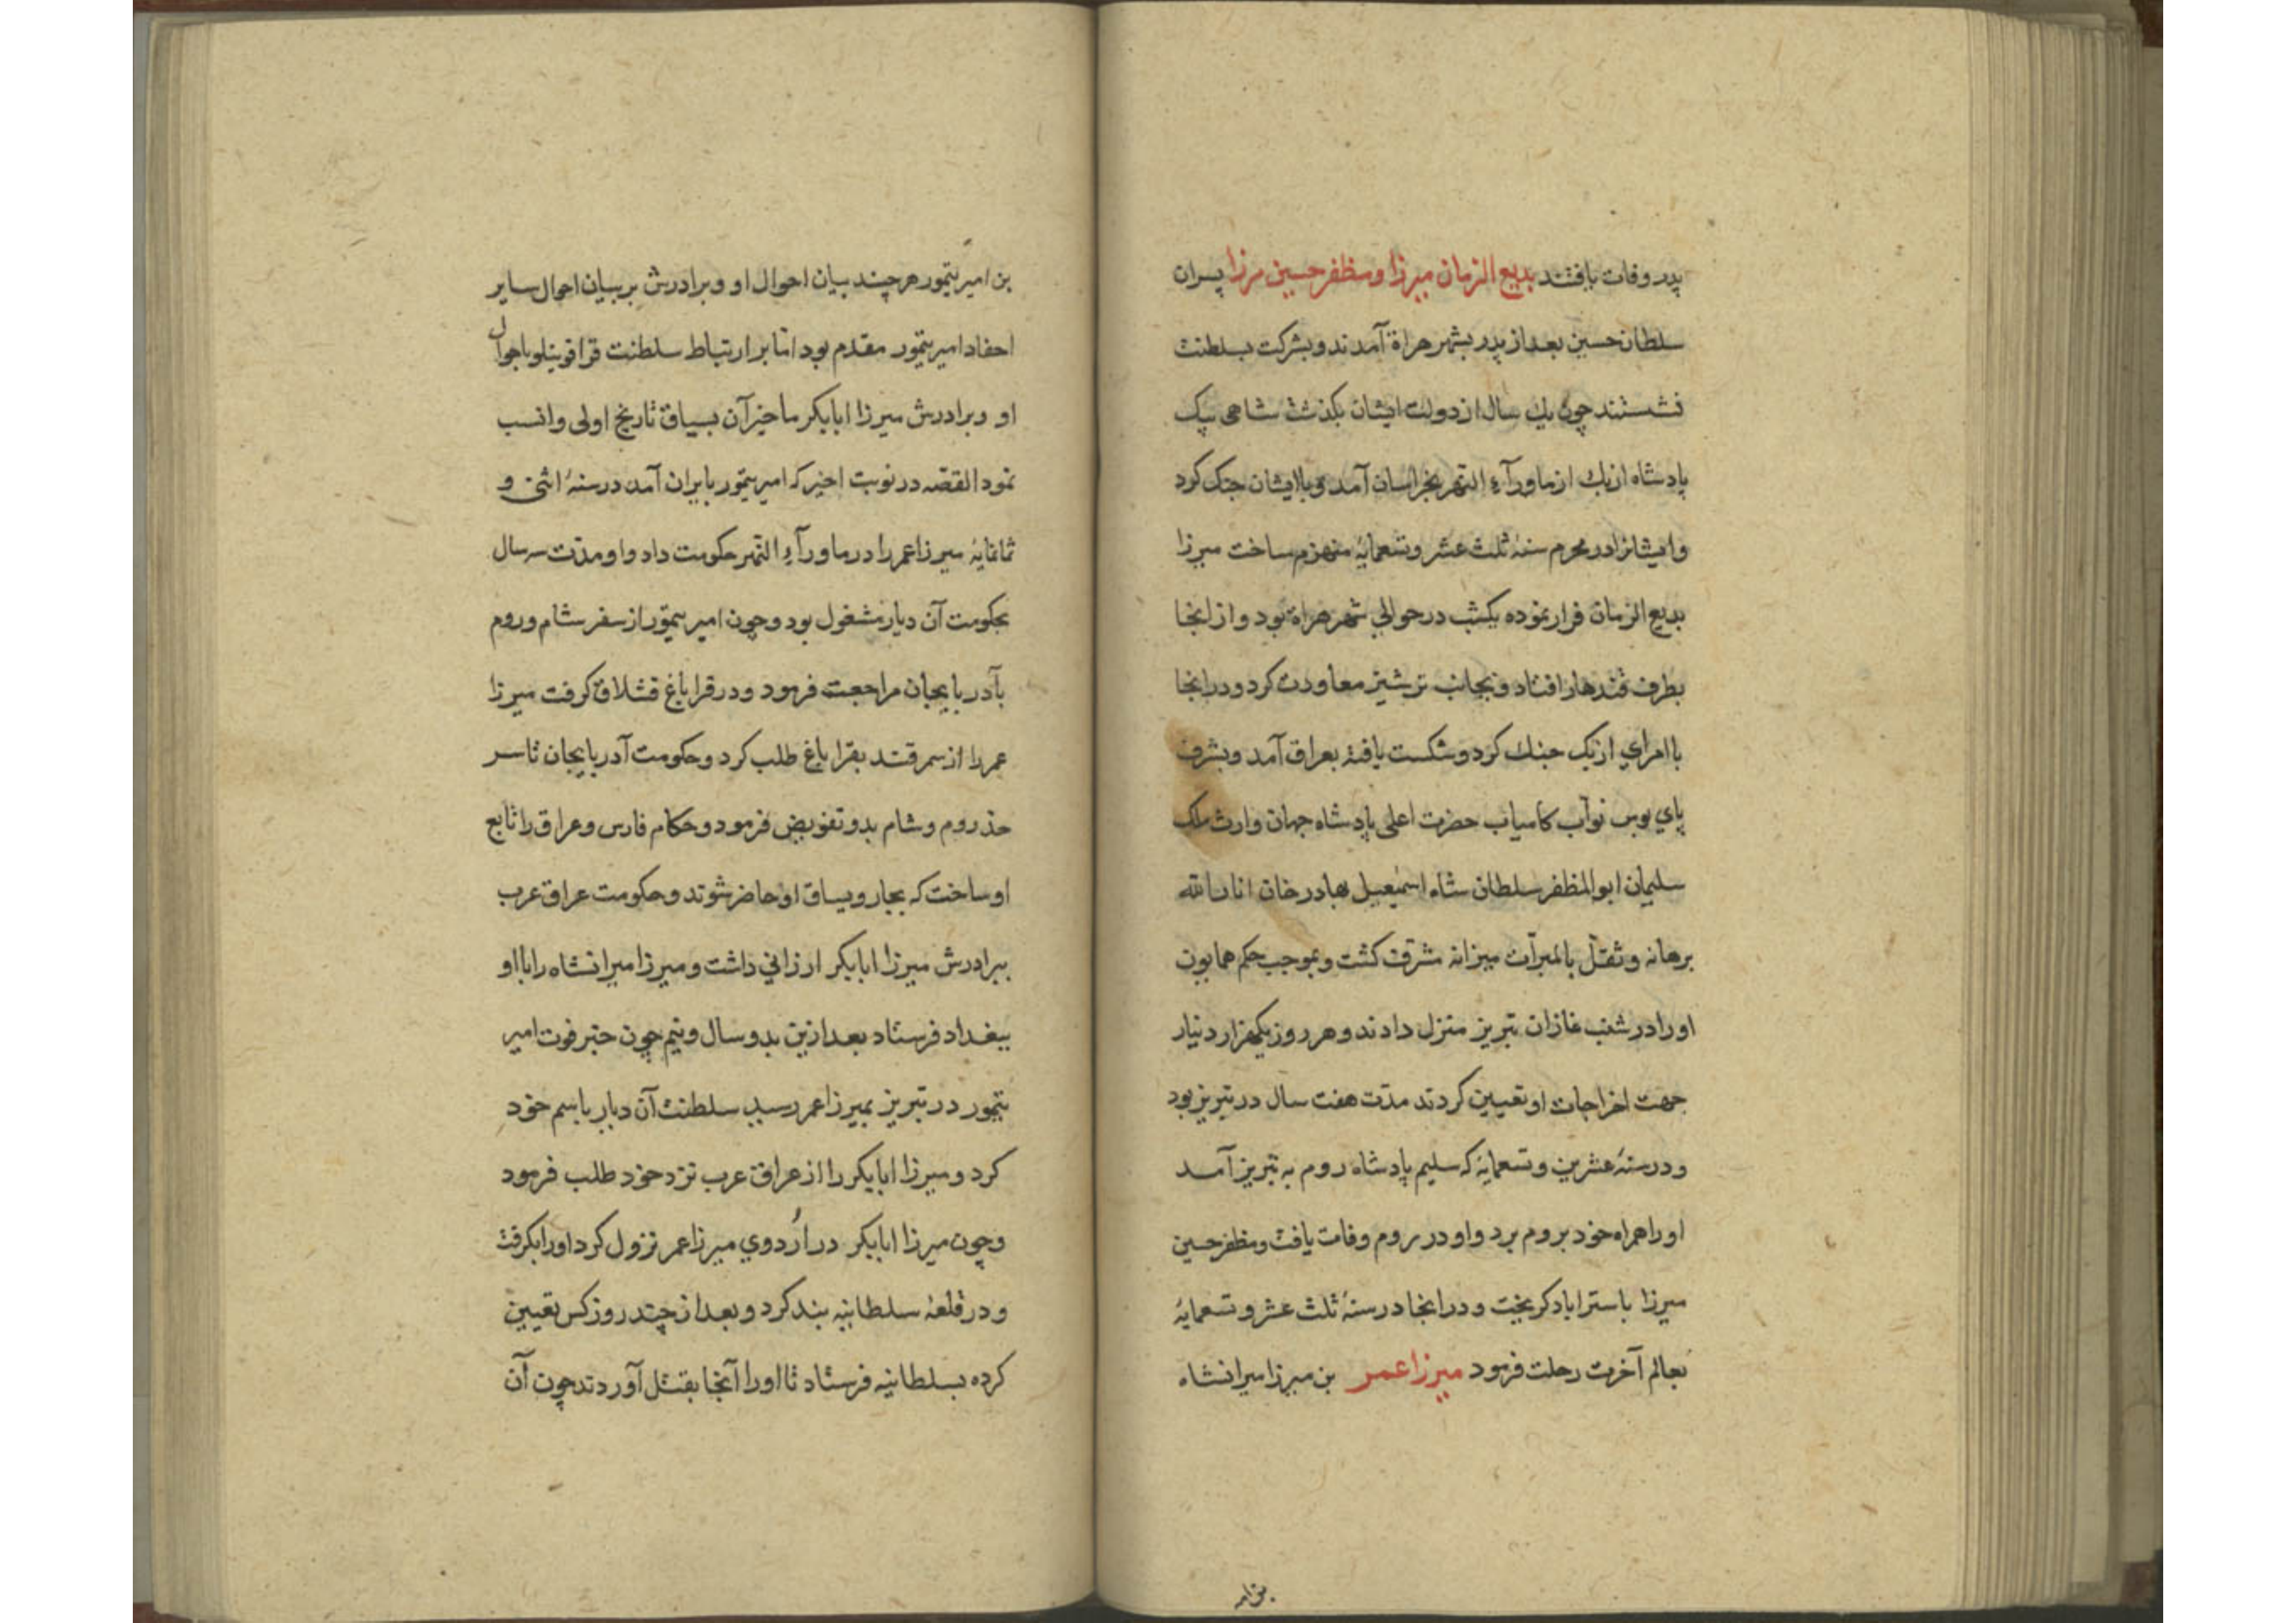 پدر وفات یافتند بدیع الزمان میرزا و مظفر حسین مرزا پسران
سلطان حسین بعد از پدر بشهر هراة آمدند و بشرکت بسلطنت
نشستند چون یك سال از دولت ایشان بکذشت شاهی بیک
پادشاه ازبك از ماورآء النهر بخراسان آمد و با ایشان جنک کرد
و ایشانرا در محرم سنۀ ثلث عشر و تسعمایۀ منهزم ساخت میرزا
بدیع الزمان فرار نموده یکشب در حوالي شهر هراة بود و از انجا
بطرف قندهار افتاد و بجانب ترشیز معاودت کرد و در انجا
با امراي ازبک جنك کرد و شکست یافته بعراق آمد و بشرف
پاي بوس نوآب کامیاب حضرت اعلی پادشاه جهان وارث ملک
سلیمان ابو المظفر سلطان شاه اسمعیل بهادر خان انار الله
برهانه و ثقل بالمبرآت میزانه مشرف کشت و بموجب حکم همایون
او را در شنب غازان تبریز منزل دادند و هر روز یکهزار دنیار
جهت اخراجات او تعیین کردند مدت هفت سال در تبریز بود
و در سنۀ عشرین و تسعمایۀ که سلیم پادشاه روم به تبریز آمد
او را همراه خود بروم برد و او در روم وفات یافت و مظفر حسین
میرزا باستراباد کریخت و در انجا در سنۀ ثلث عشر و تسعمایۀ
بعالم آخرت رحلت فرمود میرزا عمر بن میرزا میرانشاه
بن امیر
بن امیر تیمور هر چند بیان احوال او و برادرش بر بیان احوال سایر
احفاد امیر تیمور مقدم بود اما بر ارتباط سلطنت قراقوینلو باحوال
او و برادرش میرزا ابابکر ماخیر آن بسیاق تاریخ اولی و انسب
نمود القصه در نوبت اخیر که امیر تیمور بایران آمد در سنۀ اثنی و
ثمانمایۀ میرزا عمر را در ماورآء النهر حکومت داد و او مدت سه سال
بحکومت آن دیار مشغول بود و چون امیر تیمور از سفر شام و روم
بآدربایجان مراجعت فرمود و در قراباغ قشلاق کرفت میرزا
عمر را از سمرقند بقراباغ طلب کرد و حکومت آدربایجان تا سر
حد روم و شام بدو تفویض فرمود و حکام فارس و عراق را تابع
او ساخت که بجار و یساق او حاضر شوند و حکومت عراق عرب
ببرادرش میرزا ابابکر ارزاني داشت و میرزا میرانشاه را با او
ببغداد فرستاد بعد ازین بدو سال و نیم چون خبر فوت امیر
تیمور در تبریز بمیرزا عمر رسید سلطنت آن دیار باسم خود
کرد و میرزا ابابکر را از عراق عرب نزد خود طلب فرمود
و چون میرزا ابابکر در اُردوي میرزا عمر نزول کرد او را بکرفت
و در قلعۀ سلطانیه بند کرد و بعد از چند روز کس تعیین
کرده بسلطانیه فرستاد تا او را آنجا بقتل آوردند چون آن